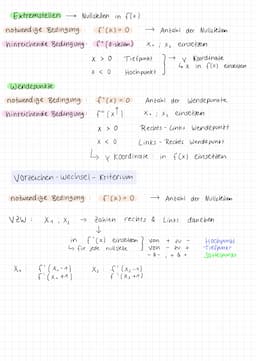 Extremstellen → Nullstellen in f'(x)
notwendige Bedingung: f'(x) = 0 → Anzahl der Nullstellen
hinreichende Bedingung: f''( ) x₁ ; x₂ einsetzen
x > 0 Tiefpunkt
x < 0 Hochpunkt
y Koordinate
↳ x in f(x) einsetzen
Wendepunkte
notwendige Bedingung: f''(x) = 0 Anzahl der Wendepunkte
hinreichende Bedingung: f'''(x) x₁ ; x₂ einsetzen
x > 0 Rechts - Links Wendepunkt
x < 0 Links - Rechts Wendepunkt
↳ y Koordinate in f(x) einsetzen
Vorzeichen - Wechsel - Kriterium
notwendige Bedingung: f'(x) = 0 → Anzahl der Nullstellen
VZW: x₁ ; x₂ → Zahlen rechts & Links daneben
↓
in f'(x) einsetzen von + zu - Hochpunkt
↳ für jede Nullstelle von - zu + Tiefpunkt
- & - ; + & + Sattelpunkt
x₁ f'(x₁-1) x₂ f'(x₂-1)
f'(x₁+1) f'(x₂+1)